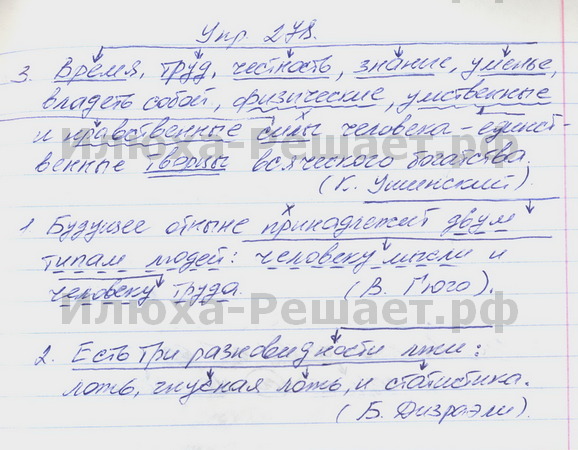 Упр. 278.
3. Время, труд, честность, знание, уменье,
владеть собой, физические, умственные
и нравственные силы человека – единст-
Илюха-Решает.рф
венные творцы всяческого богатства.
(К. Ушинский).
1 Будущее отныне принадлежит двум
типам людей: человеку мысли и
человеку труда. (В. Гюго).
Илюха-Решает.рф
2. Есть три разновидности лжи:
ложь, гнусная ложь, и статистика.
(Б. Дизраэли).